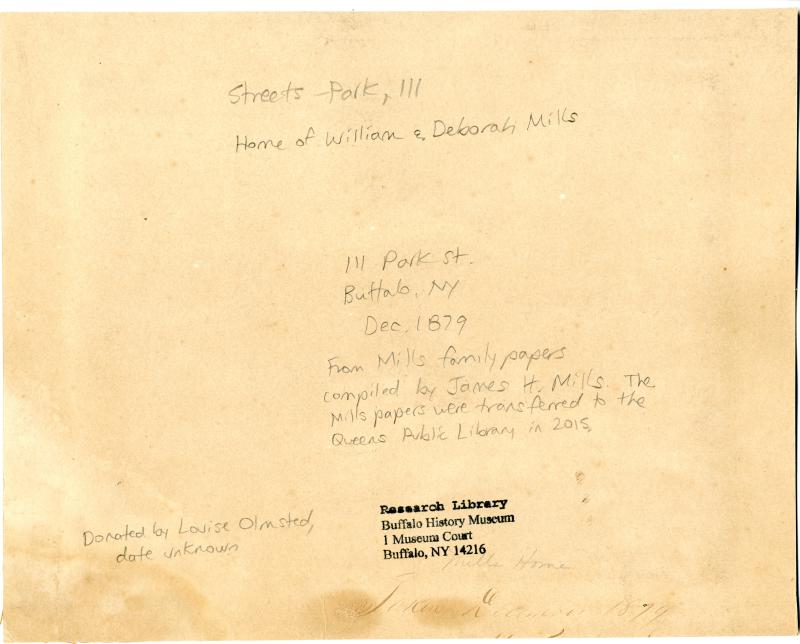 Streets - Park, 111
Home of William & Deborah Mills
111 Park St.
Buffalo, NY
Dec. 1879
From Mills family papers
compiled by James H. Mills. The
Mills papers were transferred to the
Queens Public Library in 2015.
Donated by Louise Olmsted,
date unknown
Research Library
Buffalo History Museum
1 Museum Court
Buffalo, NY 14216
Mills Home
Taken December 1879